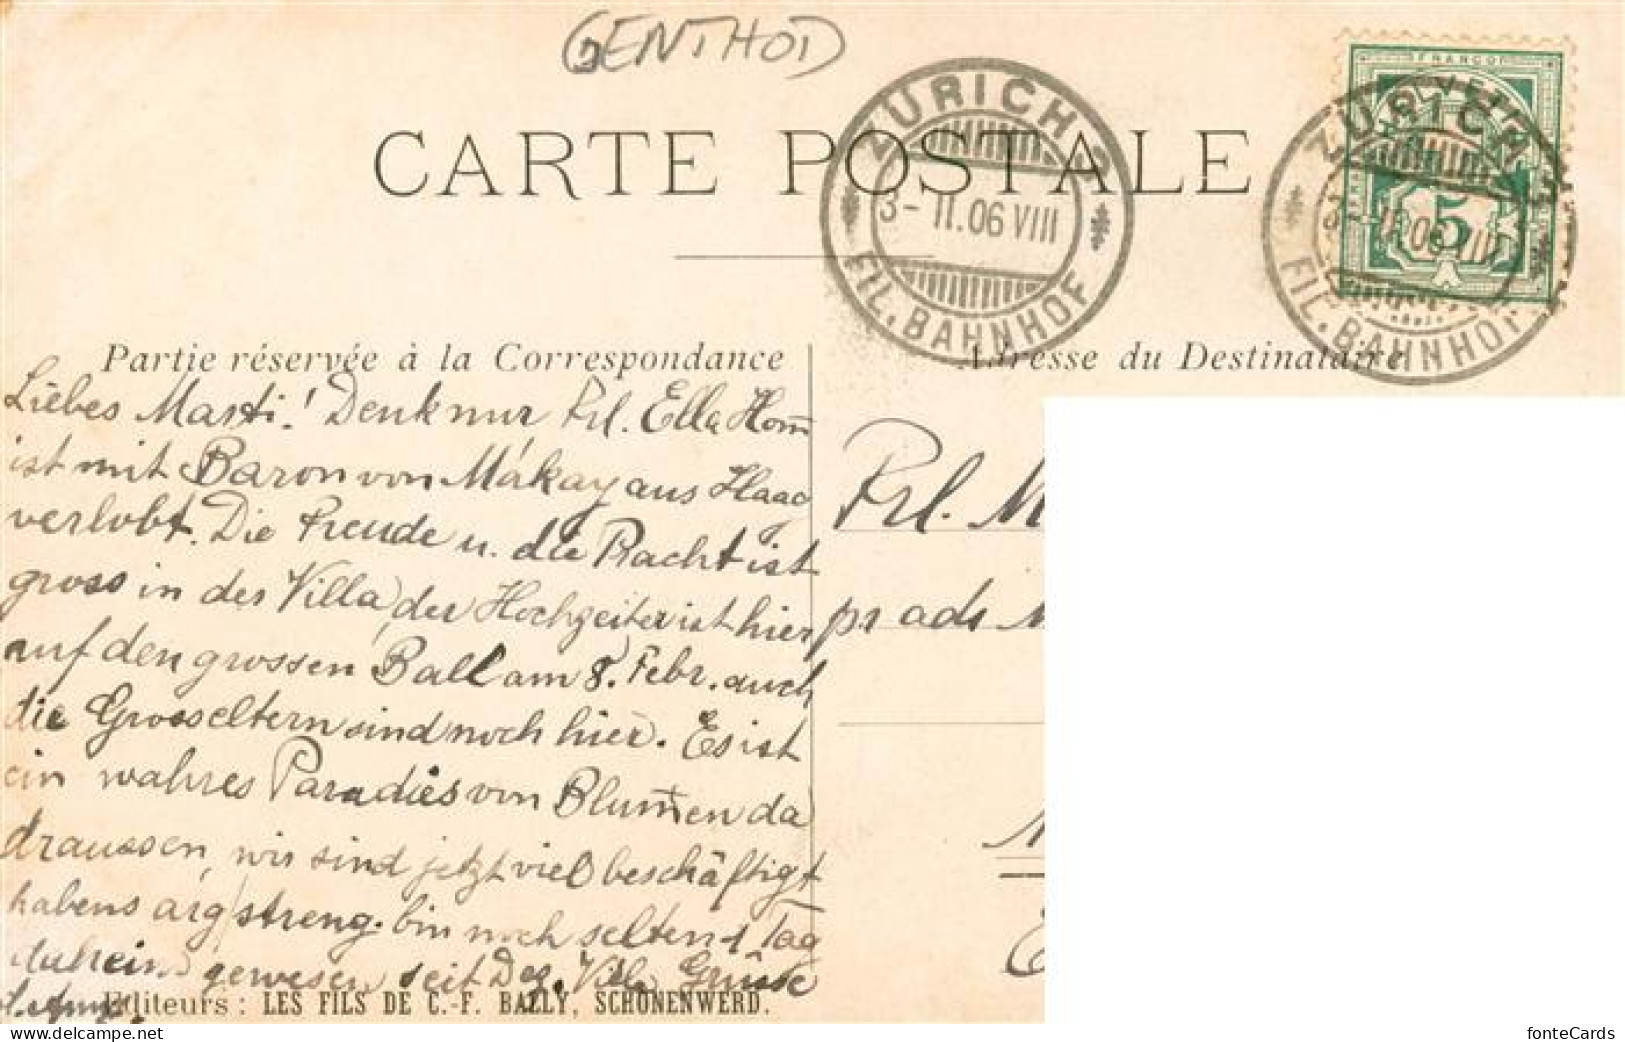 GENTHOD
CARTE POSTALE
ZÜRICH
3- II.06 VIII
FIL. BAHNHOF
FRANCO
5
ZÜRICH
3- II.06 VIII
FIL. BAHNHOF
Partie réservée à la Correspondance
Adresse du Destinataire
Liebes Marti! Denk nur Frl. Ella Hom̅
ist mit Baron von Mákay aus Haag
verlobt. Die Freude u. die Pracht ist
gross in der Villa, der Hochzeiter ist hier
auf den grossen Ball am 8. Febr. auch
die Grosseltern sind noch hier. Es ist
ein wahres Paradies von Blumen da
draussen, wir sind jetzt viel beschäftigt
habens arg streng. bin noch selten 1 Tag
daheim gewesen seit Dez. Viele Grüsse
Frl. M
pr ads
Editeurs: LES FILS DE C.-F. BALLY, SCHÖNENWERD.
delcampe.net
fonteCards